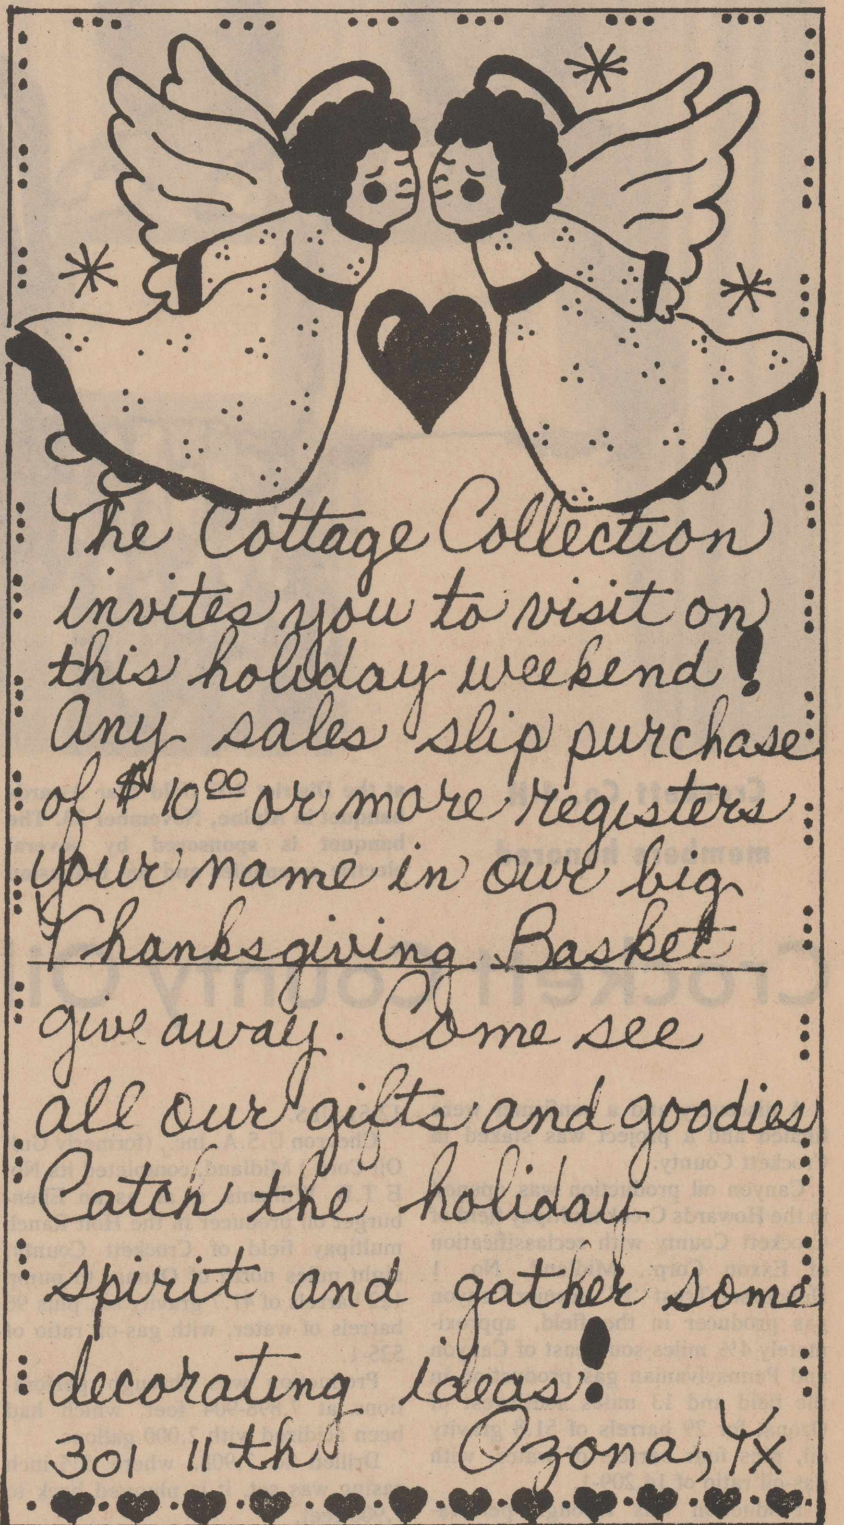 The Cottage Collection
invites you to visit on
this holiday weekend!
Any sales slip purchase
of $10.00 or more registers
your name in our big
Thanksgiving Basket
give away. Come see
all our gifts and goodies
Catch the holiday
spirit and gather some
decorating ideas!
301 11th Ozona, Tx